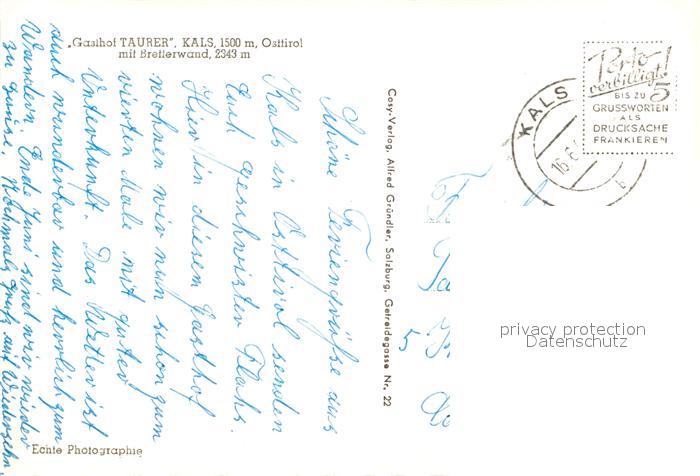 „Gasthof TAURER", KALS, 1500 m, Osttirol
mit Bretterwand, 2343 m
Schöne Feriengrüße aus
Kals in Osttirol senden
Euch Geschwister
Hier in diesem Gasthof
wohnen wir nun schon zum
vierten Male mit guter
Unterkunft. Das Wetter ist
auch wunderbar und herrlich zum
Wandern. Ende Juni sind wir wieder
zu Hause. Nochmals Gruß auf Wiedersehn
Echte Photographie
Cosy-Verlag, Alfred Gründler, Salzburg, Getreidegasse Nr. 22
KALS
16.6
b
Porto
verbilligt!
BIS ZU 5
GRUSSWORTEN
ALS
DRUCKSACHE
FRANKIEREN
5
privacy protection
Datenschutz